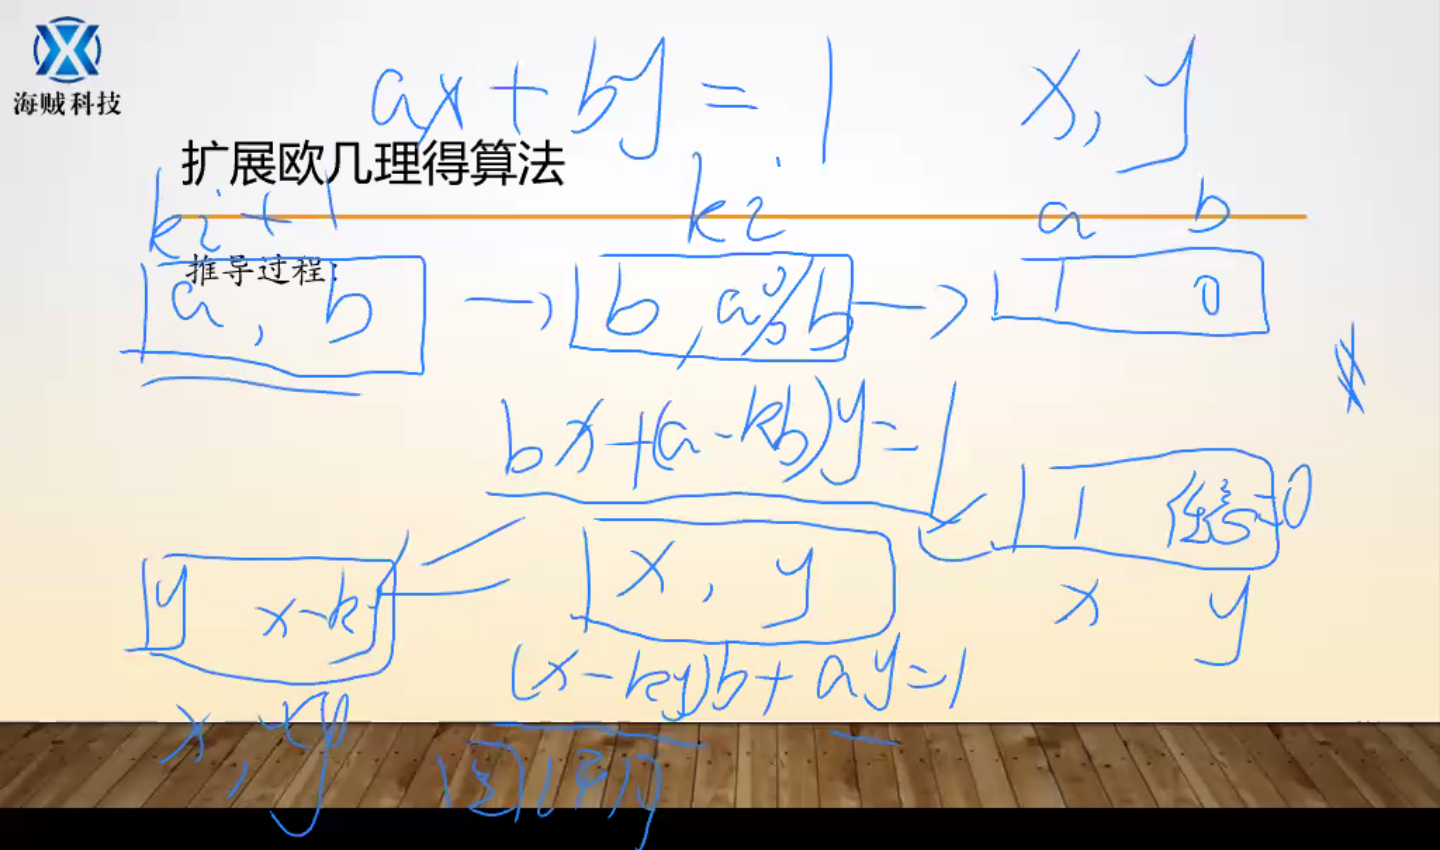 海贼科技
ax + by = 1 x, y
扩展欧几理得算法
ki + 1 ki a b
推导过程:
a, b → b, a%b → 1 0
bx+(a-kb)y=1
1 任意=0
y x-ky x, y
x y
(x-ky)b+ay=1
x, y